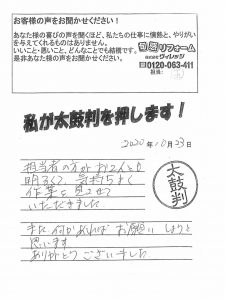 お客様の声をお聞かせください!
あなた様の喜びの声を聞くほど、私たちの仕事に情熱と、やりがい
を与えてくれるものはありません。
いいこと・悪いこと、どんなことでも結構です。
是非あなた様の声をお聞かせください。
リフォーム
株式会社ヴィレッジ
0120-063-411
担当:
私が太鼓判を押します!
2020年10月23日
担当者の方がお2人とも
明るくて、気持ちよく
作業を見させて
いただきました
太鼓判
また何かあればお願いしようと
思います
ありがとうございました